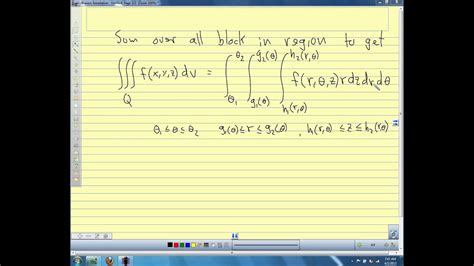 Sum over all block in region to get
∭_Q f(x,y,z) dv = ∫_{θ₁}^{θ₂} ∫_{g₁(θ)}^{g₂(θ)} ∫_{h₁(r,θ)}^{h₂(r,θ)} f(r,θ,z) r dz dr dθ
θ₁ ≤ θ ≤ θ₂ g₁(θ) ≤ r ≤ g₂(θ) , h₁(r,θ) ≤ z ≤ h₂(r,θ)